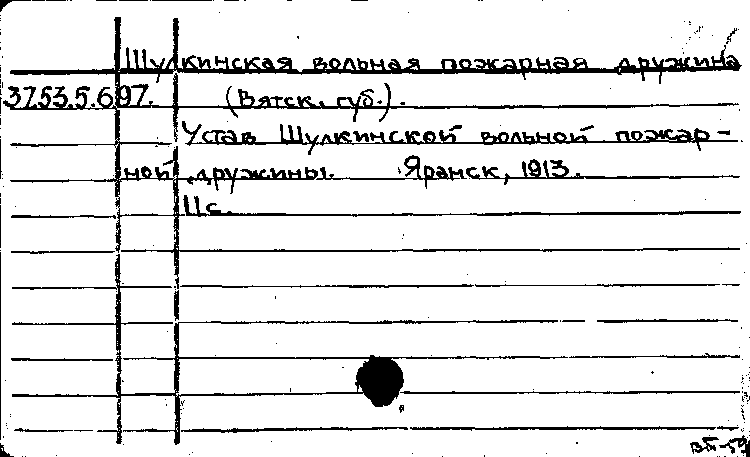 Шулкинская вольная пожарная дружина
37.53.5.697. (Вятск. губ.).
Устав Шулкинской вольной пожар-
ной дружины. Яранск, 1913.
11 с.